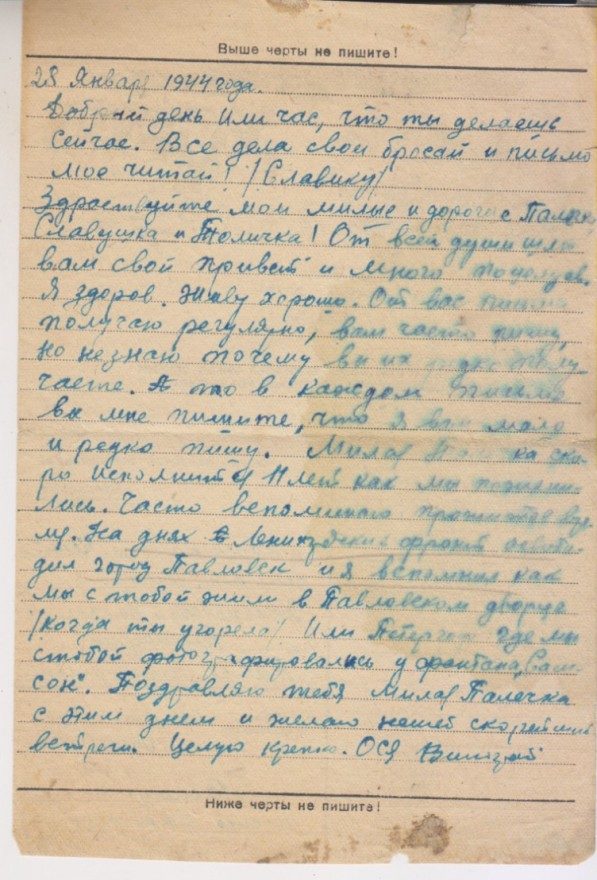 Выше черты не пишите!
28 Январе 1944 года.
Добрый день или час, что ты делаешь
сейчас. Все дела свои бросай и письмо
мое читай! /Славику/
Здраствуйте мои милые и дорогие Палечка,
Славушка и Толичка! От всей души шлю
вам свой привет и много поцелуев.
Я здоров. Живу хорошо. От вас письма
получаю регулярно, вам часто пишу,
но незнаю почему вы их редко полу-
чаете. А то в каждом письме
вы мне пишите, что я вам мало
и редко пишу. Милая Палечка ско-
ро исполнится лет как мы пожени-
лись. Часто вспоминаю прожитое
На днях Ленинградский фронт освобо-
дил город Павловск и я вспомнил как
мы с тобой жили в Павловском дворце
/когда ты угорела/ Или Петергоф где мы
стобой фотографировались у фонтана „Сам-
сон". Поздравляю тебя Милая Палечка
с этим днем и желаю нашей скорейшей
встречи. Целую крепко. Ося
Ниже черты не пишите!